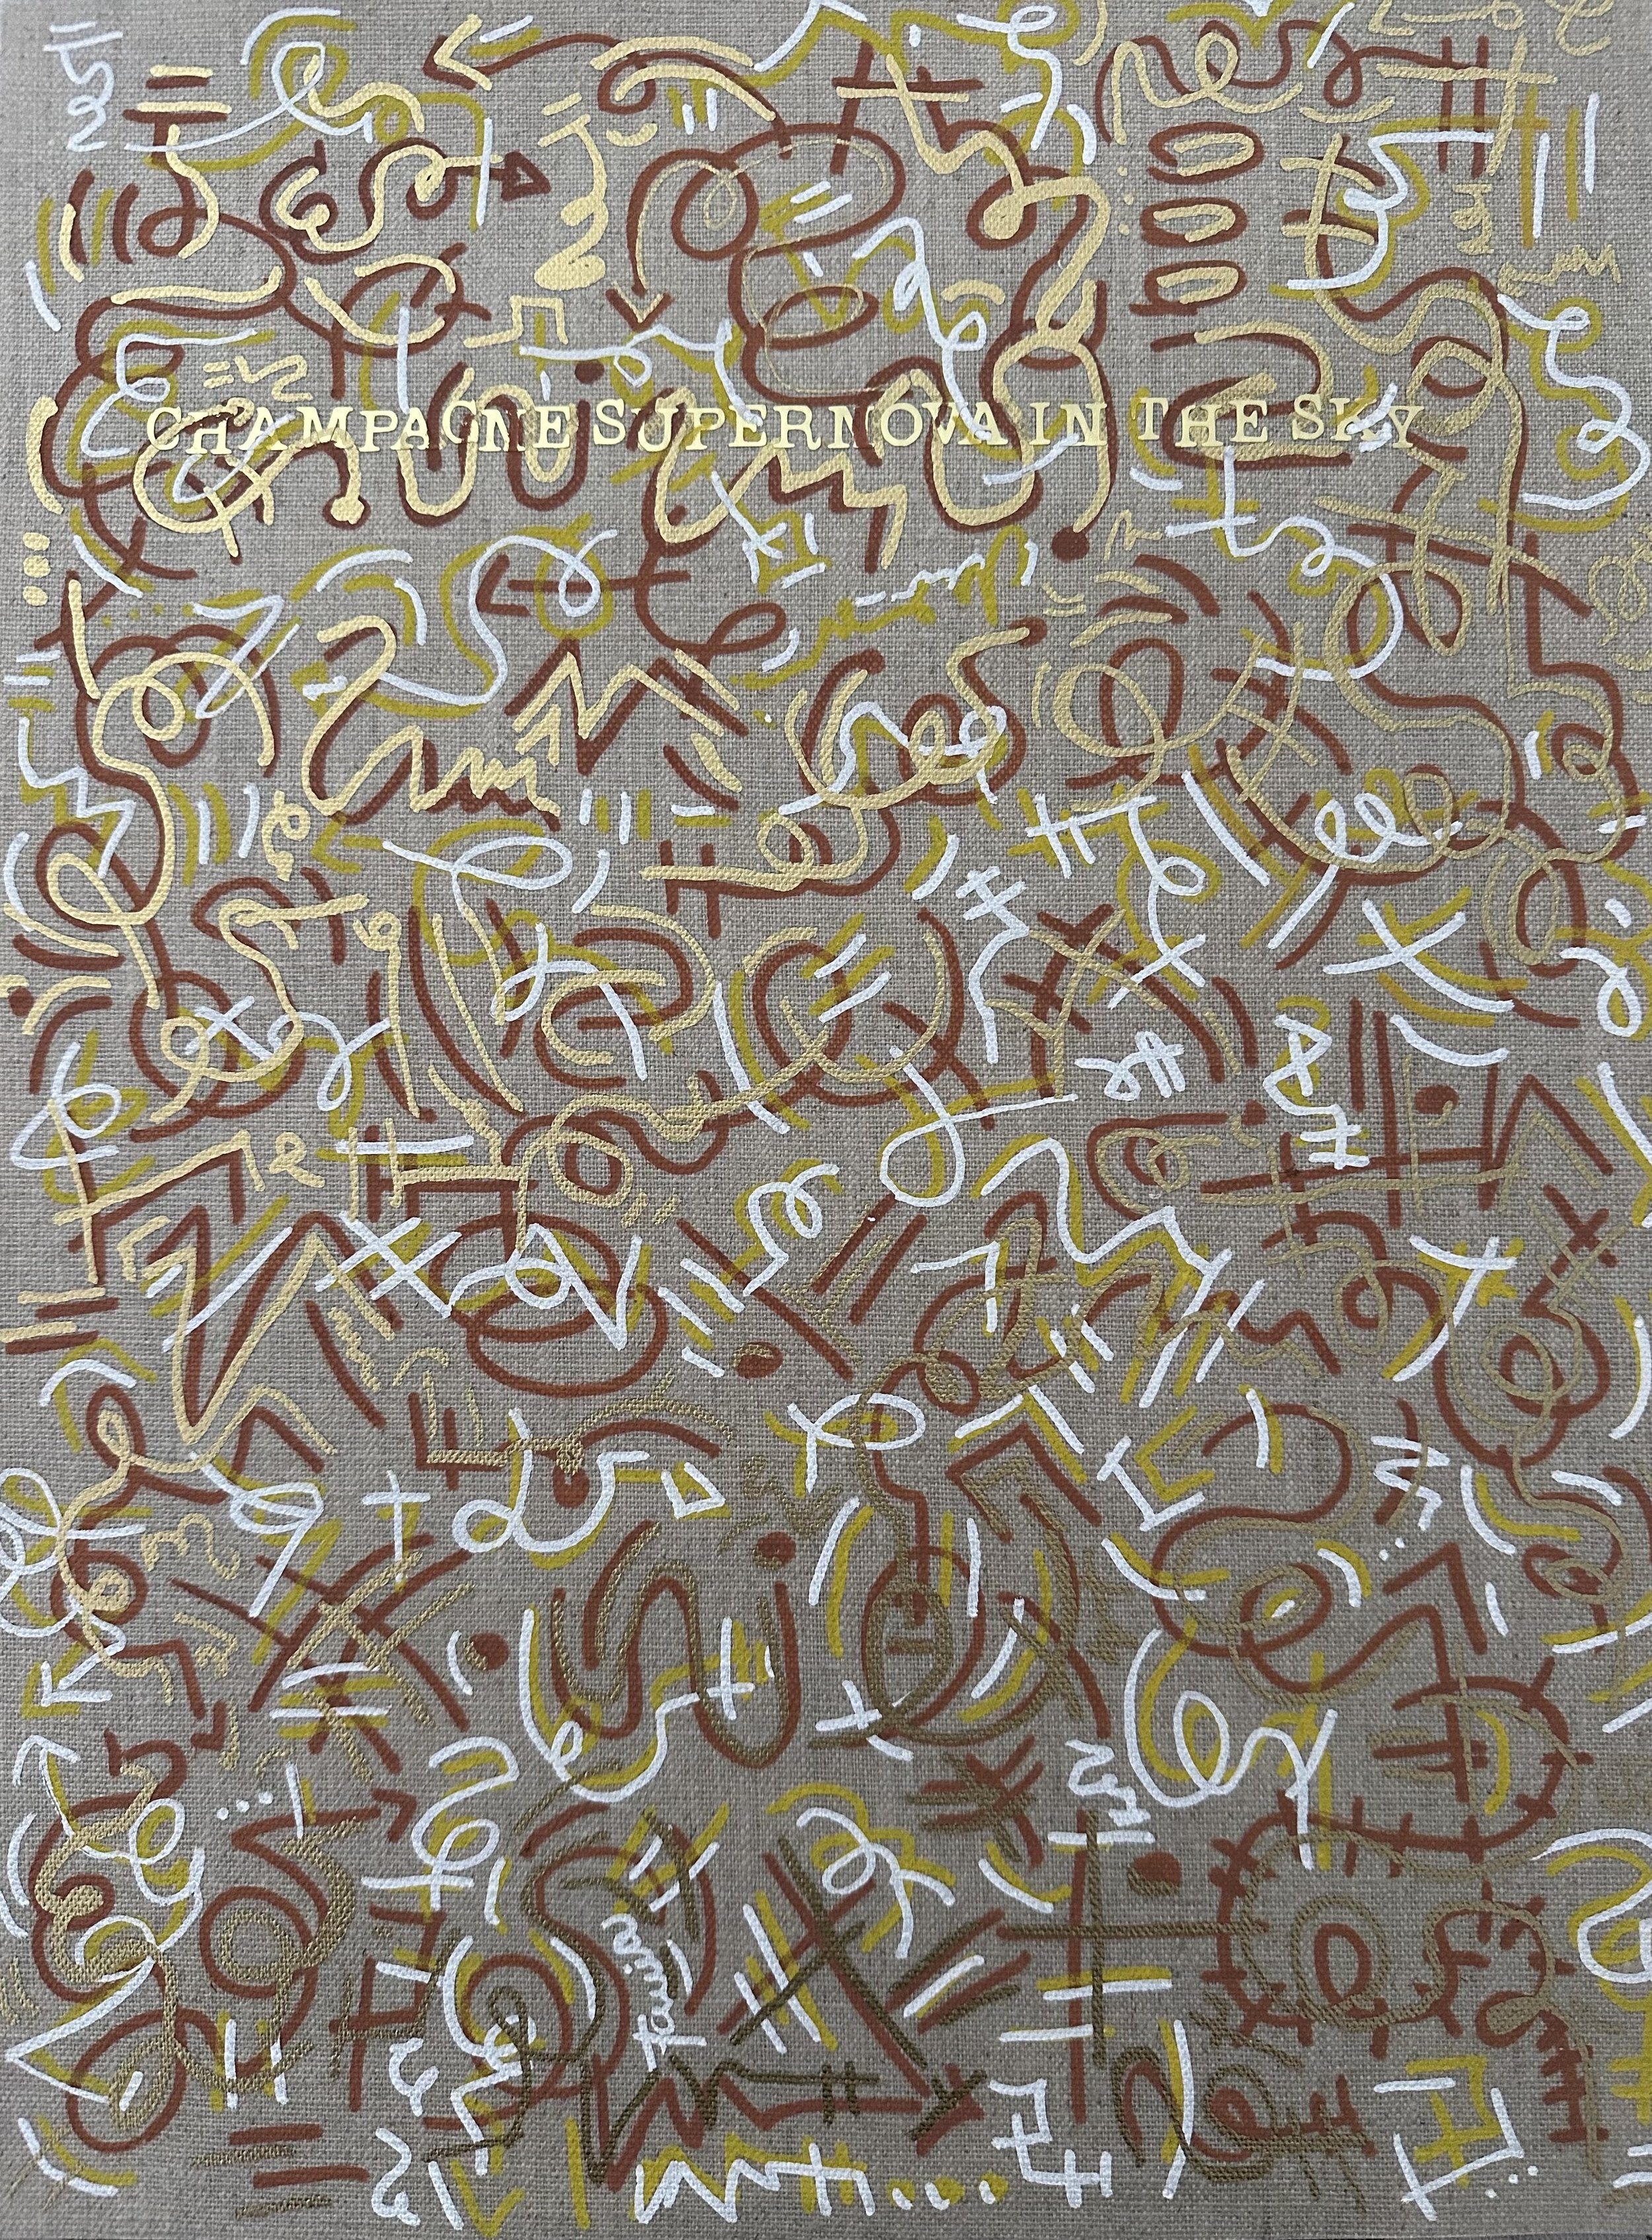 CHAMPAGNE SUPERNOVA IN THE SKY